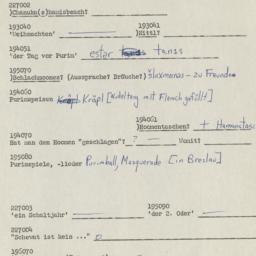 227002
)Chanuke(s)hausbesch?
193040 193041
'Weihnachten' )Nittl?
194051
'der Tag vor Purim' ester tanis
195070
)Schlachmones? (Aussprache? Bräuche?) šlaxmonas – zu Freunde
194060
Purimspeisen Kräpl [Nudelteig mit Fleisch gefüllt]
194061
)Homentaschen? + Hamantasc
194070
Hat man dem Hoomen "geschlagen"? ? Womit?
195080
Purimspiele, -lieder Purimball, Masquerade [in Breslau]
227003 195090
'ein Schaltjahr' 'der 2. Oder'
227004
"Schevat ist kein ..."
196070